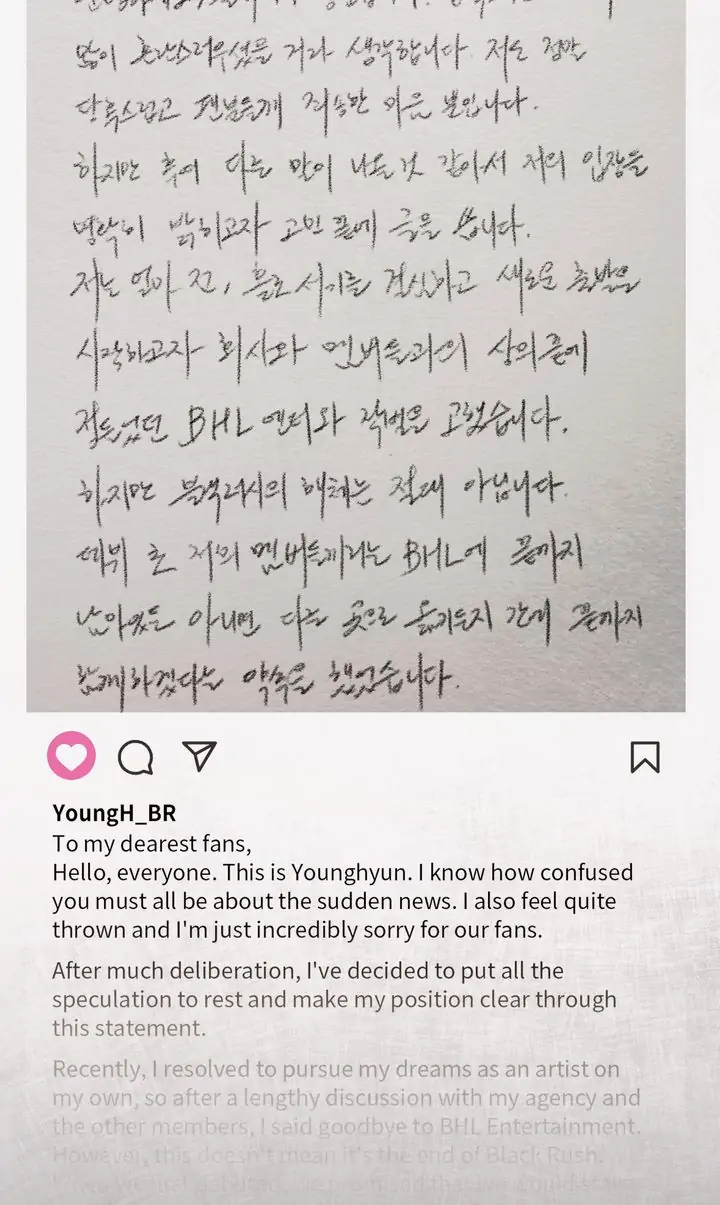 많이 혼란스러우셨을 거라 생각합니다 저도 정말
당혹스럽고 팬분들께 죄송한 마음 뿐입니다.
하지만 후에 다른 말이 나올 것 같아서 저의 입장을
명확히 밝히고자 고민 끝에 글을 씁니다.
저는 얼마 전, 홀로서기를 결심하고 새로운 출발을
시작하고자 회사와 멤버들과의 상의 끝에
정들었던 BHL 엔터와 작별을 고했습니다.
하지만 블랙러시의 해체는 절대 아닙니다.
데뷔 초 저의 멤버들끼리는 BHL에 끝까지
남아있든 아니면 다른 곳으로 옮기든지 간에 끝까지
함께하겠다는 약속을 했었습니다.
YoungH_BR
To my dearest fans,
Hello, everyone. This is Younghyun. I know how confused
you must all be about the sudden news. I also feel quite
thrown and I'm just incredibly sorry for our fans.
After much deliberation, I've decided to put all the
speculation to rest and make my position clear through
this statement.
Recently, I resolved to pursue my dreams as an artist on
my own, so after a lengthy discussion with my agency and
the other members, I said goodbye to BHL Entertainment.
However, this doesn't mean it's the end of Black Rush.